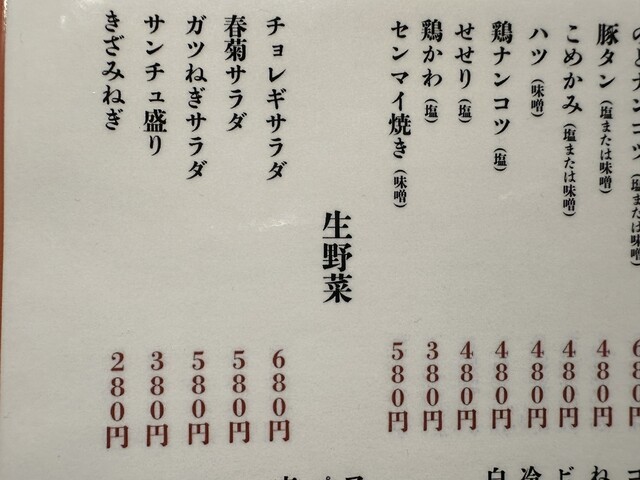 のどナンコツ（塩または味噌）
豚タン（塩または味噌） 480円
こめかみ（塩または味噌） 480円
ハツ（味噌） 480円
鶏ナンコツ（塩） 480円
せせり（塩） 480円
鶏かわ（塩） 380円
センマイ焼き（味噌） 580円
生野菜
チョレギサラダ 680円
春菊サラダ 580円
ガツねぎサラダ 580円
サンチュ盛り 380円
きざみねぎ 280円